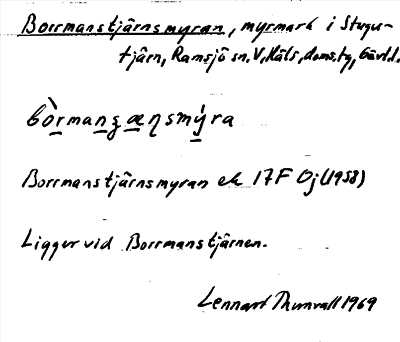 Borrmanstjärnsmyran, myrmark i Stugu-
tjärn, Ramsjö sn. V. Häls. doms.tg, Gävl.l.
bòrmanʂæɳsmỳra
Borrmanstjärnsmyran ek 17F 0j (1958)
Ligger vid Borrmanstjärnen.
Lennart Thunvall 1969